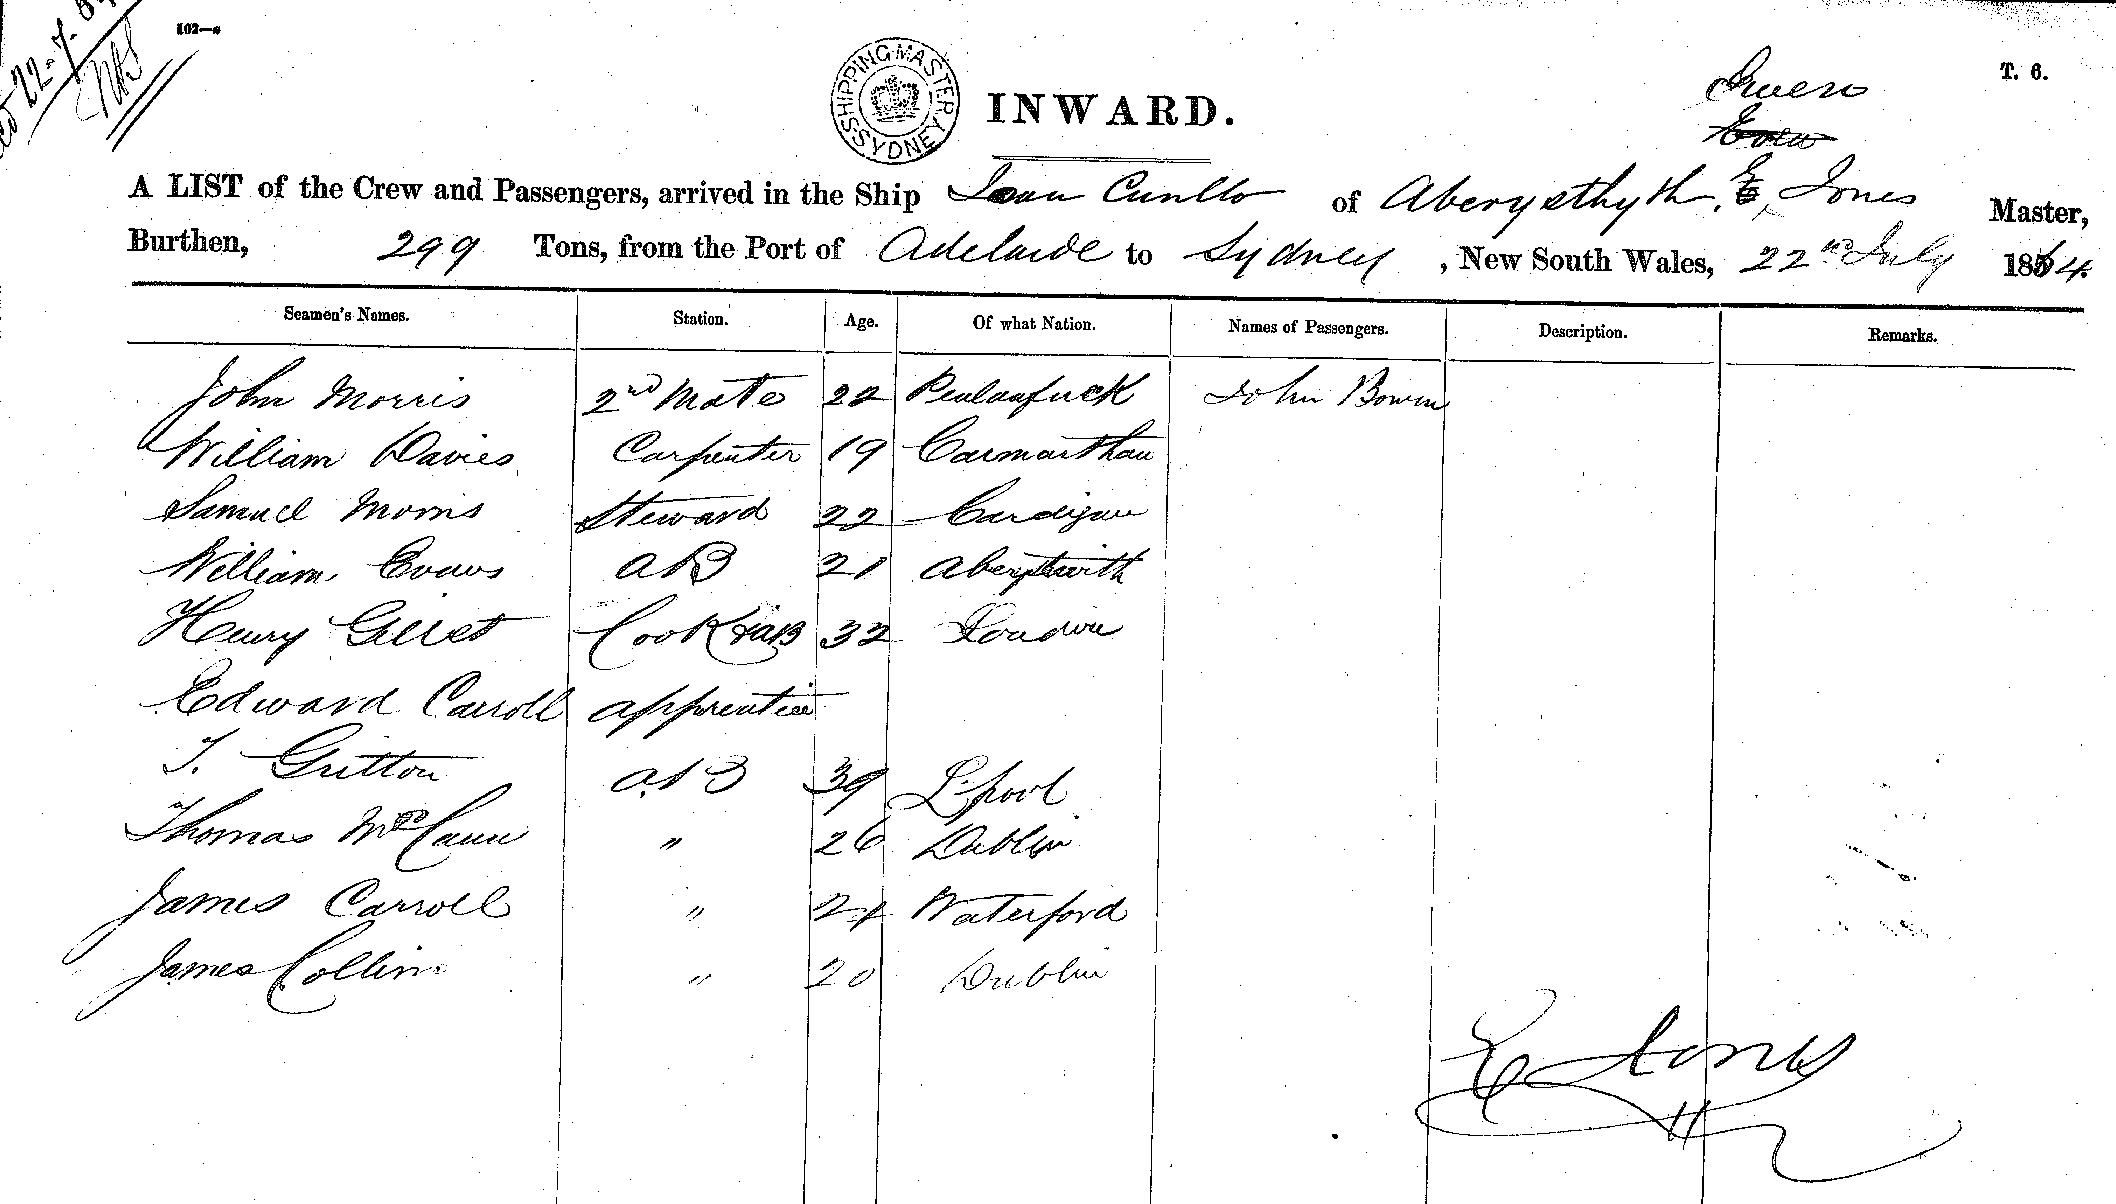 22.7.64
102—a
SHIPPING MASTER SYDNEY
INWARD.
T. 6.
A LIST of the Crew and Passengers, arrived in the Ship Ioan Cunllo of Aberysthyth, E, Jones Master,
Burthen, 299 Tons, from the Port of Adelaide to Sydney, New South Wales, 22nd July 1864.
Seamen's Names. Station. Age. Of what Nation. Names of Passengers. Description. Remarks.
John Morris 2nd Mate 22 John Bowen
William Davies Carpenter 19 Carmarthan
Samuel Morris Steward 22 Cardigan
William Evans AB 21
Henry Cook & AB 32 London
Edward Carroll apprentice
T. Gritton A.B 39 L.pool
Thomas McCann " 26 Dublin
James Carroll " 21 Waterford
James Collins " 20 Dublin
E Jones